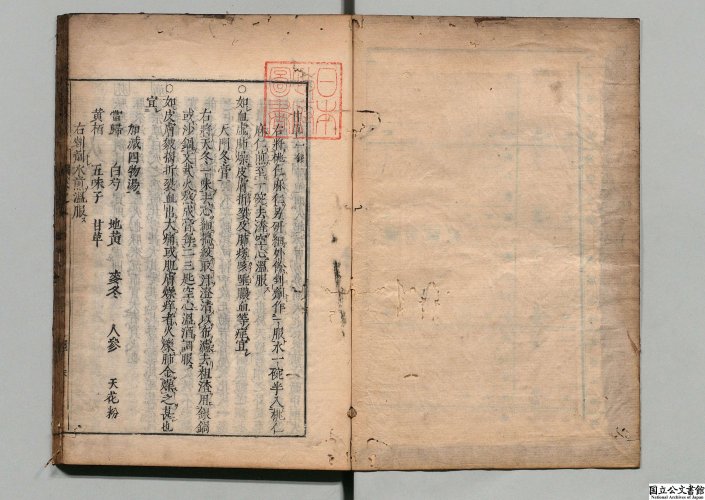 甘草一錢
右將桃仁麻仁另研細外修剉劑作一服水一碗半入桃仁
麻仁煎至一碗去渣空心溫服
○如血虛肺燥皮膚折裂及肺痿咳嗽膿血等症宜
天門冬膏
右將天冬一味去心細搗絞取汁澄清以布濾去粗渣用銀鍋
或沙鍋文武火熬成膏每二三匙空心溫酒調服
○如皮膚皴揭折裂血出大痛或肌膚燥痒者火爍肺金燥之甚也
宜
加減四物湯
當歸 白芍 地黃 麥冬 人參 天花粉
黃栢 五味子 甘草
右剉劑水煎溫服
日本
圖書
国立公文書館
National Archives of Japan